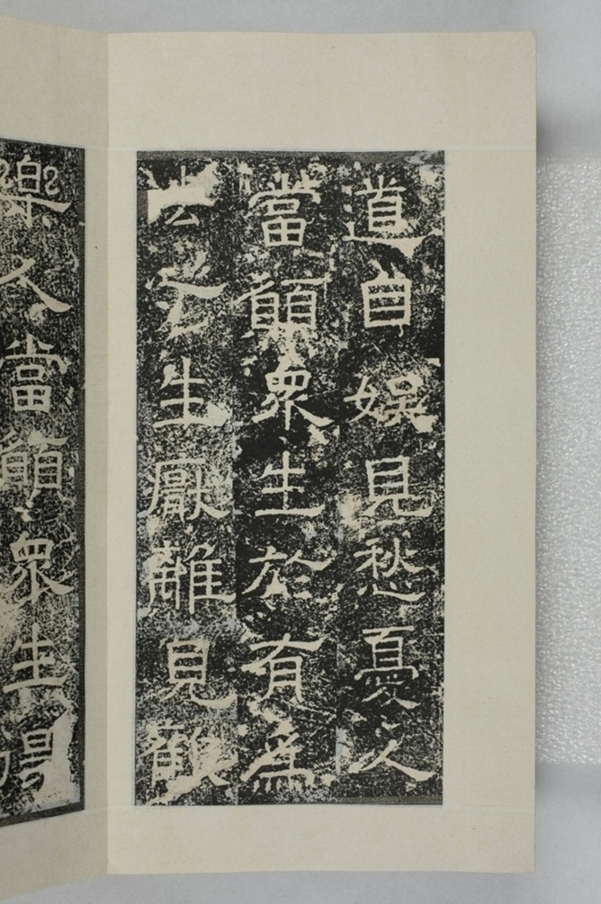 道自娛見愁憂人
當願衆生於有爲
法心生厭離見歡
樂人當願衆生得